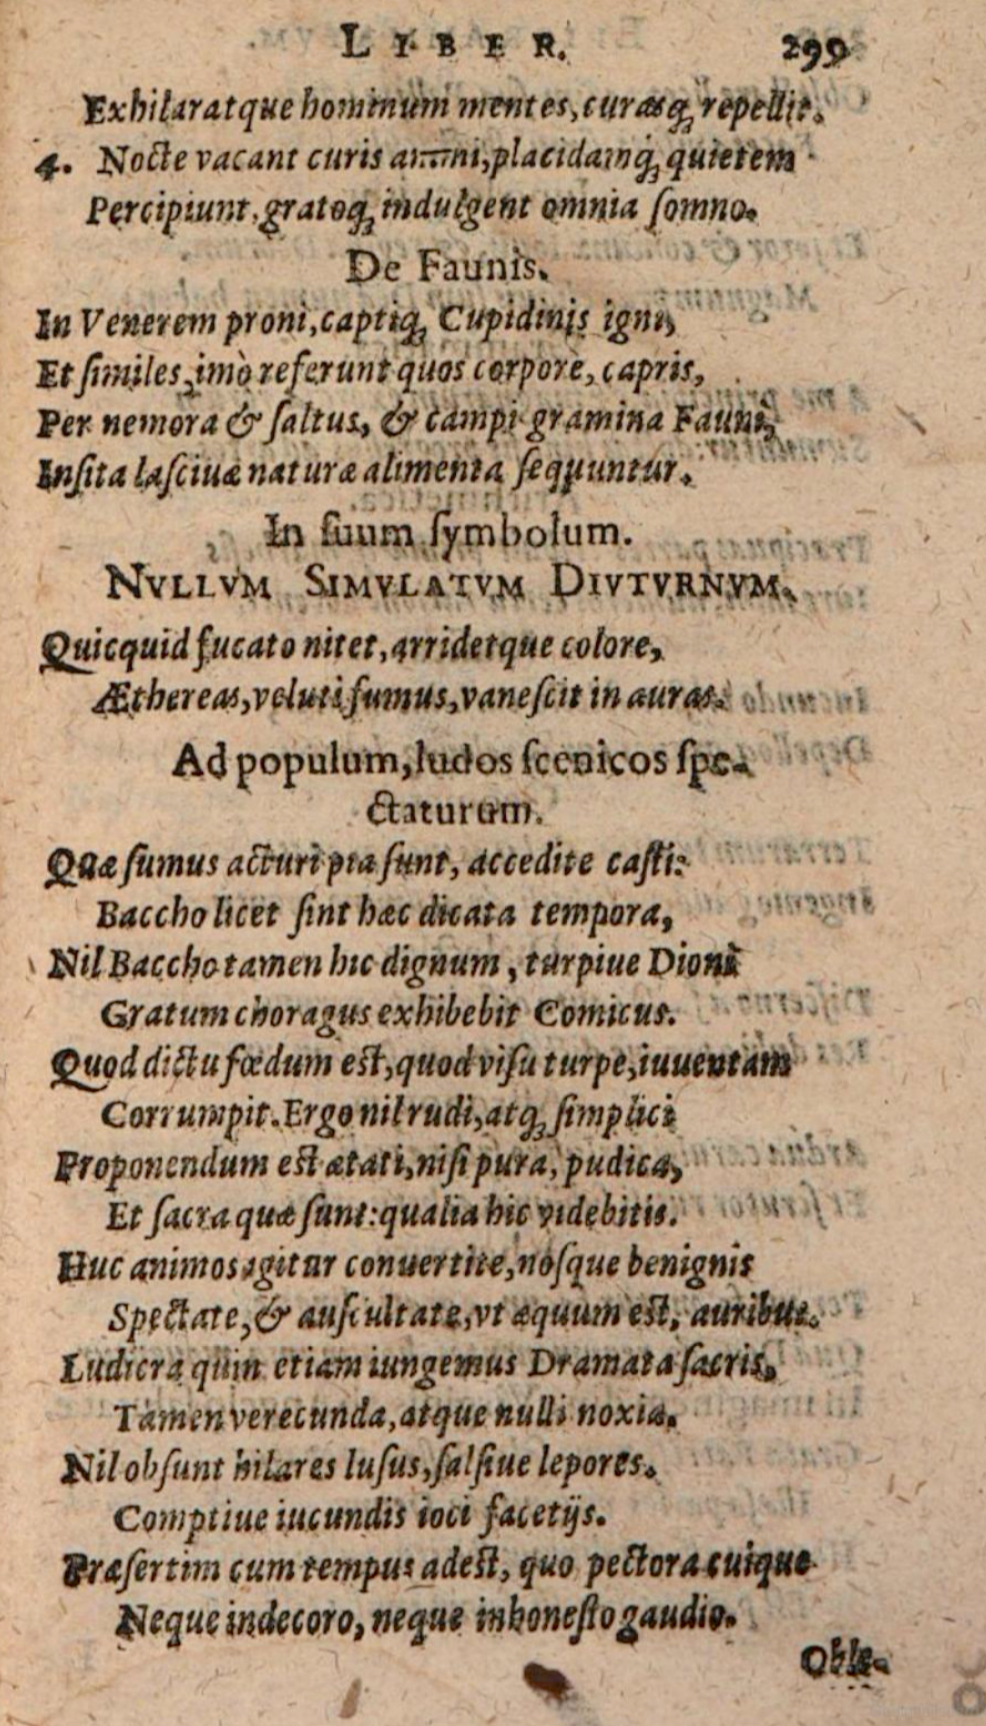 LIBER. 299
Exhilaratque hominum mentes, curasq́; repellit.
4. Nocte vacant curis animi, placidamq́; quietem
Percipiunt, gratoq́; indulgent omnia ſomno.
De Faunis.
In Venerem proni, captiq́; Cupidinis igni,
Et ſimiles, imò referunt quos corpore, capris,
Per nemora & ſaltus, & campi gramina Fauni,
Inſita laſciuæ naturæ alimenta ſequuntur.
In ſuum ſymbolum.
NVLLVM SIMVLATVM DIVTVRNVM.
Quicquid fucato nitet, arridetque colore,
Æthereas, veluti fumus, vaneſcit in auras.
Ad populum, ludos ſcenicos ſpe-
ctaturum.
Quæ ſumus acturi pia ſunt, accedite caſti:
Baccho licet ſint hæc dicata tempora,
Nil Baccho tamen hic dignum, turpiue Dioni
Gratum choragus exhibebit Comicus.
Quod dictu fœdum eſt, quod viſu turpe, iuuentam
Corrumpit. Ergo nil rudi, atq́; ſimplici
Proponendum eſt ætati, niſi pura, pudica,
Et ſacra quæ ſunt: qualia hic videbitis.
Huc animos igitur conuertite, noſque benignis
Spectate, & auſcultate, vt æquum eſt, auribus.
Ludicra quin etiam iungemus Dramata ſacris,
Tamen verecunda, atque nulli noxia.
Nil obſunt hilares luſus, ſalſiue lepores.
Comptiue iucundis ioci facetijs.
Præſertim cum tempus adeſt, quo pectora cuique
Neque indecoro, neque inhoneſto gaudio.
Oble-